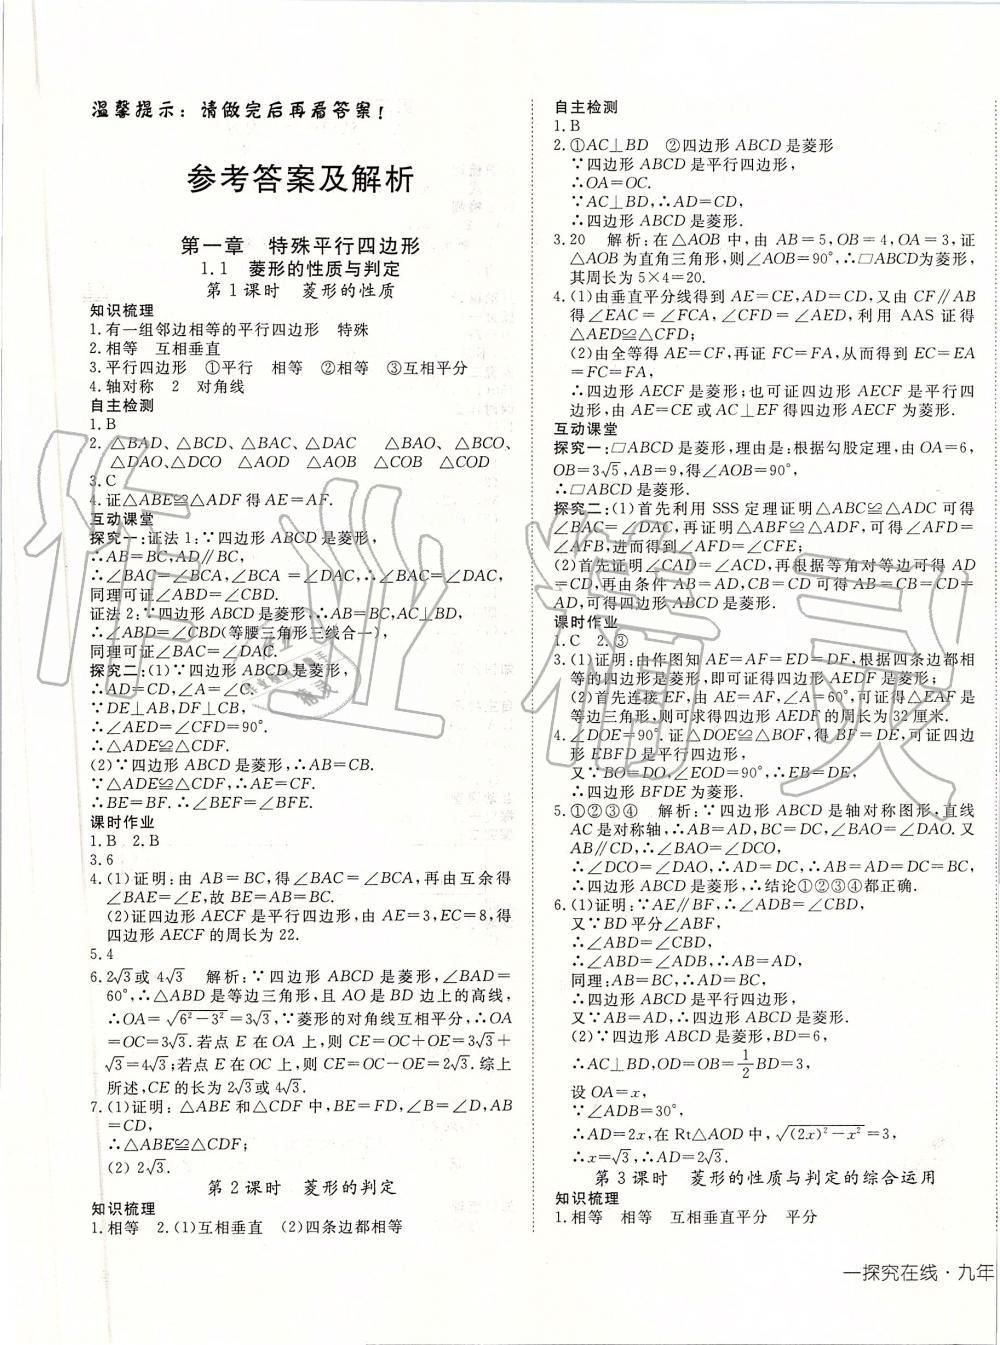 温馨提示：请做完后再看答案！
参考答案及解析
第一章　特殊平行四边形
1.1　菱形的性质与判定
第1课时　菱形的性质
知识梳理
1.有一组邻边相等的平行四边形　特殊
2.相等　互相垂直
3.平行四边形　①平行　相等　②相等　③互相平分
4.轴对称　2　对角线
自主检测
1.B
2.△BAD、△BCD、△BAC、△DAC　△BAO、△BCO、
△DAO、△DCO　△AOD　△AOB　△BAO　△COB
3.C
4.证△ABE≌△ADF得AE=AF.
互动课堂
探究一:证法1:∵四边形ABCD是菱形,
∴AB=BC,AD∥BC,
∴∠BAC=∠BCA,∠BCA=∠DAC,∴∠BAC=∠DAC,
同理可证∠ABD=∠CBD.
证法2:∵四边形ABCD是菱形,∴AB=BC,AC⊥BD,
∴∠ABD=∠CBD(等腰三角形三线合一),
同理可证∠BAC=∠DAC.
探究二:(1)∵四边形ABCD是菱形,
∴AD=CD,∠A=∠C.
∵DE⊥AB,DF⊥CB,
∴∠AED=∠CFD=90°,
∴△ADE≌△CDF.
(2)∵四边形ABCD是菱形,∴AB=CB.
∵△ADE≌△CDF,∴AE=CF.
∴BE=BF.∴∠BEF=∠BFE.
课时作业
1.B　2.B
3.6
4.(1)证明:由AB=BC,得∠BAC=∠BCA,再由互余得
∠BAE=∠E,故BE=AB=BC.
(2)证四边形AECF是平行四边形,由AE=3,EC=8,得
四边形AECF的周长为22.
5.4
6.2√3或4√3　解析:∵四边形ABCD是菱形,∠BAD=
60°,∴△ABD是等边三角形,且AO是BD边上的高线,
∴OA=√(6²-3²)=3√3,∵菱形的对角线互相平分,∴OA
=OC=3√3.若点E在OA上,则CE=OC+OE=3√3+
√3=4√3;若点E在OC上,则CE=OC-OE=2√3.综上
所述,CE的长为2√3或4√3.
7.(1)证明:△ABE和△CDF中,BE=FD,∠B=∠D,AB
=CD,
∴△ABE≌△CDF;
(2) 2√3.
第2课时　菱形的判定
知识梳理
1.相等　2.(1)互相垂直　(2)四条边都相等
自主检测
1.B
2.①AC⊥BD　②四边形ABCD是菱形
∵四边形ABCD是平行四边形,
∴OA=OC.
∵AC⊥BD,∴AD=CD,
∴四边形ABCD是菱形.
3.20　解析:在△AOB中,由AB=5,OB=4,OA=3,证
△AOB为直角三角形,则∠AOB=90°,∴▱ABCD为菱形,
其周长为5×4=20.
4.(1)由垂直平分线得到AE=CE,AD=CD,又由CF∥AB
得∠EAC=∠FCA,∠CFD=∠AED,利用AAS证得
△AED≌△CFD;
(2)由全等得AE=CF,再证FC=FA,从而得到EC=EA
=FC=FA,
∴四边形AECF是菱形;也可证四边形AECF是平行四
边形,由AE=CE或AC⊥EF得四边形AECF为菱形.
互动课堂
探究一:▱ABCD是菱形,理由是:根据勾股定理,由OA=6,
OB=3√5,AB=9,得∠AOB=90°,
∴▱ABCD是菱形.
探究二:(1)首先利用SSS定理证明△ABC≌△ADC可得
∠BAC=∠DAC,再证明△ABF≌△ADF,可得∠AFD=
∠AFB,进而得到∠AFD=∠CFE;
(2)首先证明∠CAD=∠ACD,再根据等角对等边可得AD
=CD,再由条件AB=AD,CB=CD可得AB=CB=CD=
AD,可得四边形ABCD是菱形.
课时作业
1.C　2.③
3.(1)证明:由作图知AE=AF=ED=DF,根据四条边都相
等的四边形是菱形,即可证得四边形AEDF是菱形;
(2)首先连接EF,由AE=AF,∠A=60°,可证得△EAF是
等边三角形,则可求得四边形AEDF的周长为32厘米.
4.∠DOE=90°.证△DOE≌△BOF,得BF=DE,可证四边
形EBFD是平行四边形,
又∵BO=DO,∠EOD=90°,∴EB=DE,
∴四边形BFDE为菱形.
5.①②③④　解析:∵四边形ABCD是轴对称图形,直线
AC是对称轴,∴AB=AD,BC=DC,∠BAO=∠DAO.又
AB∥CD,∴∠BAO=∠DCO,
∴∠DCO=∠DAO,∴AD=DC,∴AB=AD=DC=BC,
∴四边形ABCD是菱形,∴结论①②③④都正确.
6.(1)证明:∵AE∥BF,∴∠ADB=∠CBD,
又∵BD平分∠ABF,
∴∠ABD=∠CBD,
∴∠ABD=∠ADB,∴AB=AD,
同理:AB=BC,∴AD=BC,
∴四边形ABCD是平行四边形,
又∵AB=AD,∴四边形ABCD是菱形.
(2)∵四边形ABCD是菱形,BD=6,
∴AC⊥BD,OD=OB=1/2BD=3,
设OA=x,
∵∠ADB=30°,
∴AD=2x,在Rt△AOD中,√((2x)²-x²)=3,
∴x=√3,∴AD=2√3.
第3课时　菱形的性质与判定的综合运用
知识梳理
1.相等　相等　互相垂直平分　平分
一探究在线·九年
作业精灵